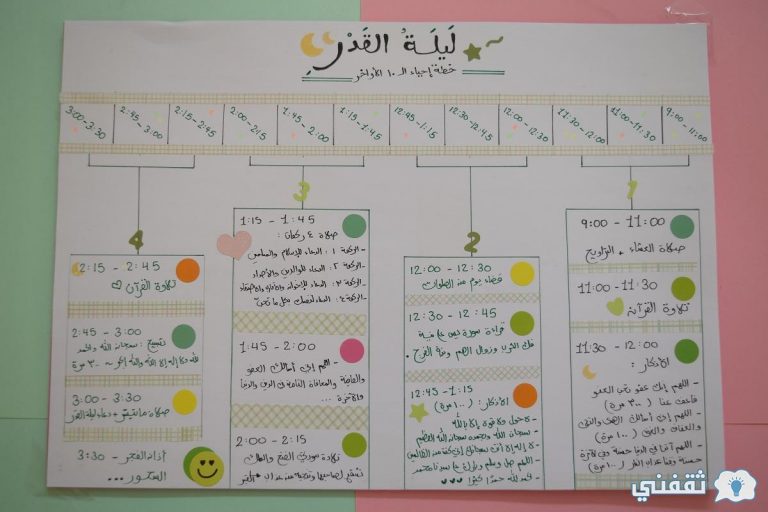 لَيلَةُ القَدْرِ
خطة إحياء الـ ١٠ الأواخر
9:00 - 11:00
11:00 - 11:30
11:30 - 12:00
12:00 - 12:30
12:30 - 12:45
12:45 - 1:15
1:15 - 1:45
1:45 - 2:00
2:00 - 2:15
2:15 - 2:45
2:45 - 3:00
3:00 - 3:30
1
9:00 - 11:00
صلاة العشاء + التراويح
11:00 - 11:30
تلاوة القرآن
11:30 - 12:00
الأذكار:
- اللهم إنك عفو تحب العفو
فاعف عنا (٣٠٠ مرة)
- اللهم إني أسألك الهدى والتقى
والعفاف والغنى (١٠٠ مرة)
- اللهم آتنا في الدنيا حسنة وفي الآخرة
حسنة وقنا عذاب النار (١٠٠ مرة)
2
12:00 - 12:30
قضاء يوم من الصلوات
12:30 - 12:45
قراءة سورة يس على نية
فك الكرب وزوال الهم
12:45 - 1:15
الأذكار: (١٠٠ مرة)
- لا حول ولا قوة إلا بالله
- سبحان الله وبحمده سبحان الله العظيم
- لا إله إلا أنت سبحانك إني كنت من الظالمين
- اللهم صل وسلم وبارك على سيدنا محمد
- الحمدلله حمدًا كثيرًا
3
1:15 - 1:45
صلاة ٤ ركعات:
- الركعة ١: الدعاء للإسلام والمسلمين
- الركعة ٢: الدعاء للوالدين والأجداد
- الركعة ٣: الدعاء للإخوان والأقارب والأصدقاء
- الركعة ٤: الدعاء لنفسك بكل ما تحب
1:45 - 2:00
- اللهم إني أسألك العفو
والعافية والمعافاة الدائمة في الدين والدنيا
والآخرة ...
2:00 - 2:15
تلاوة سورتي الفتح والملك
4
2:15 - 2:45
تلاوة القرآن
2:45 - 3:00
تسبيح: سبحان الله والحمد
لله ولا إله إلا الله والله أكبر ~ ٣٠٠ مرة
3:00 - 3:30
+ دعاء ليلة القدر
3:30 - أذان الفجر
السحور ...
ثقفني